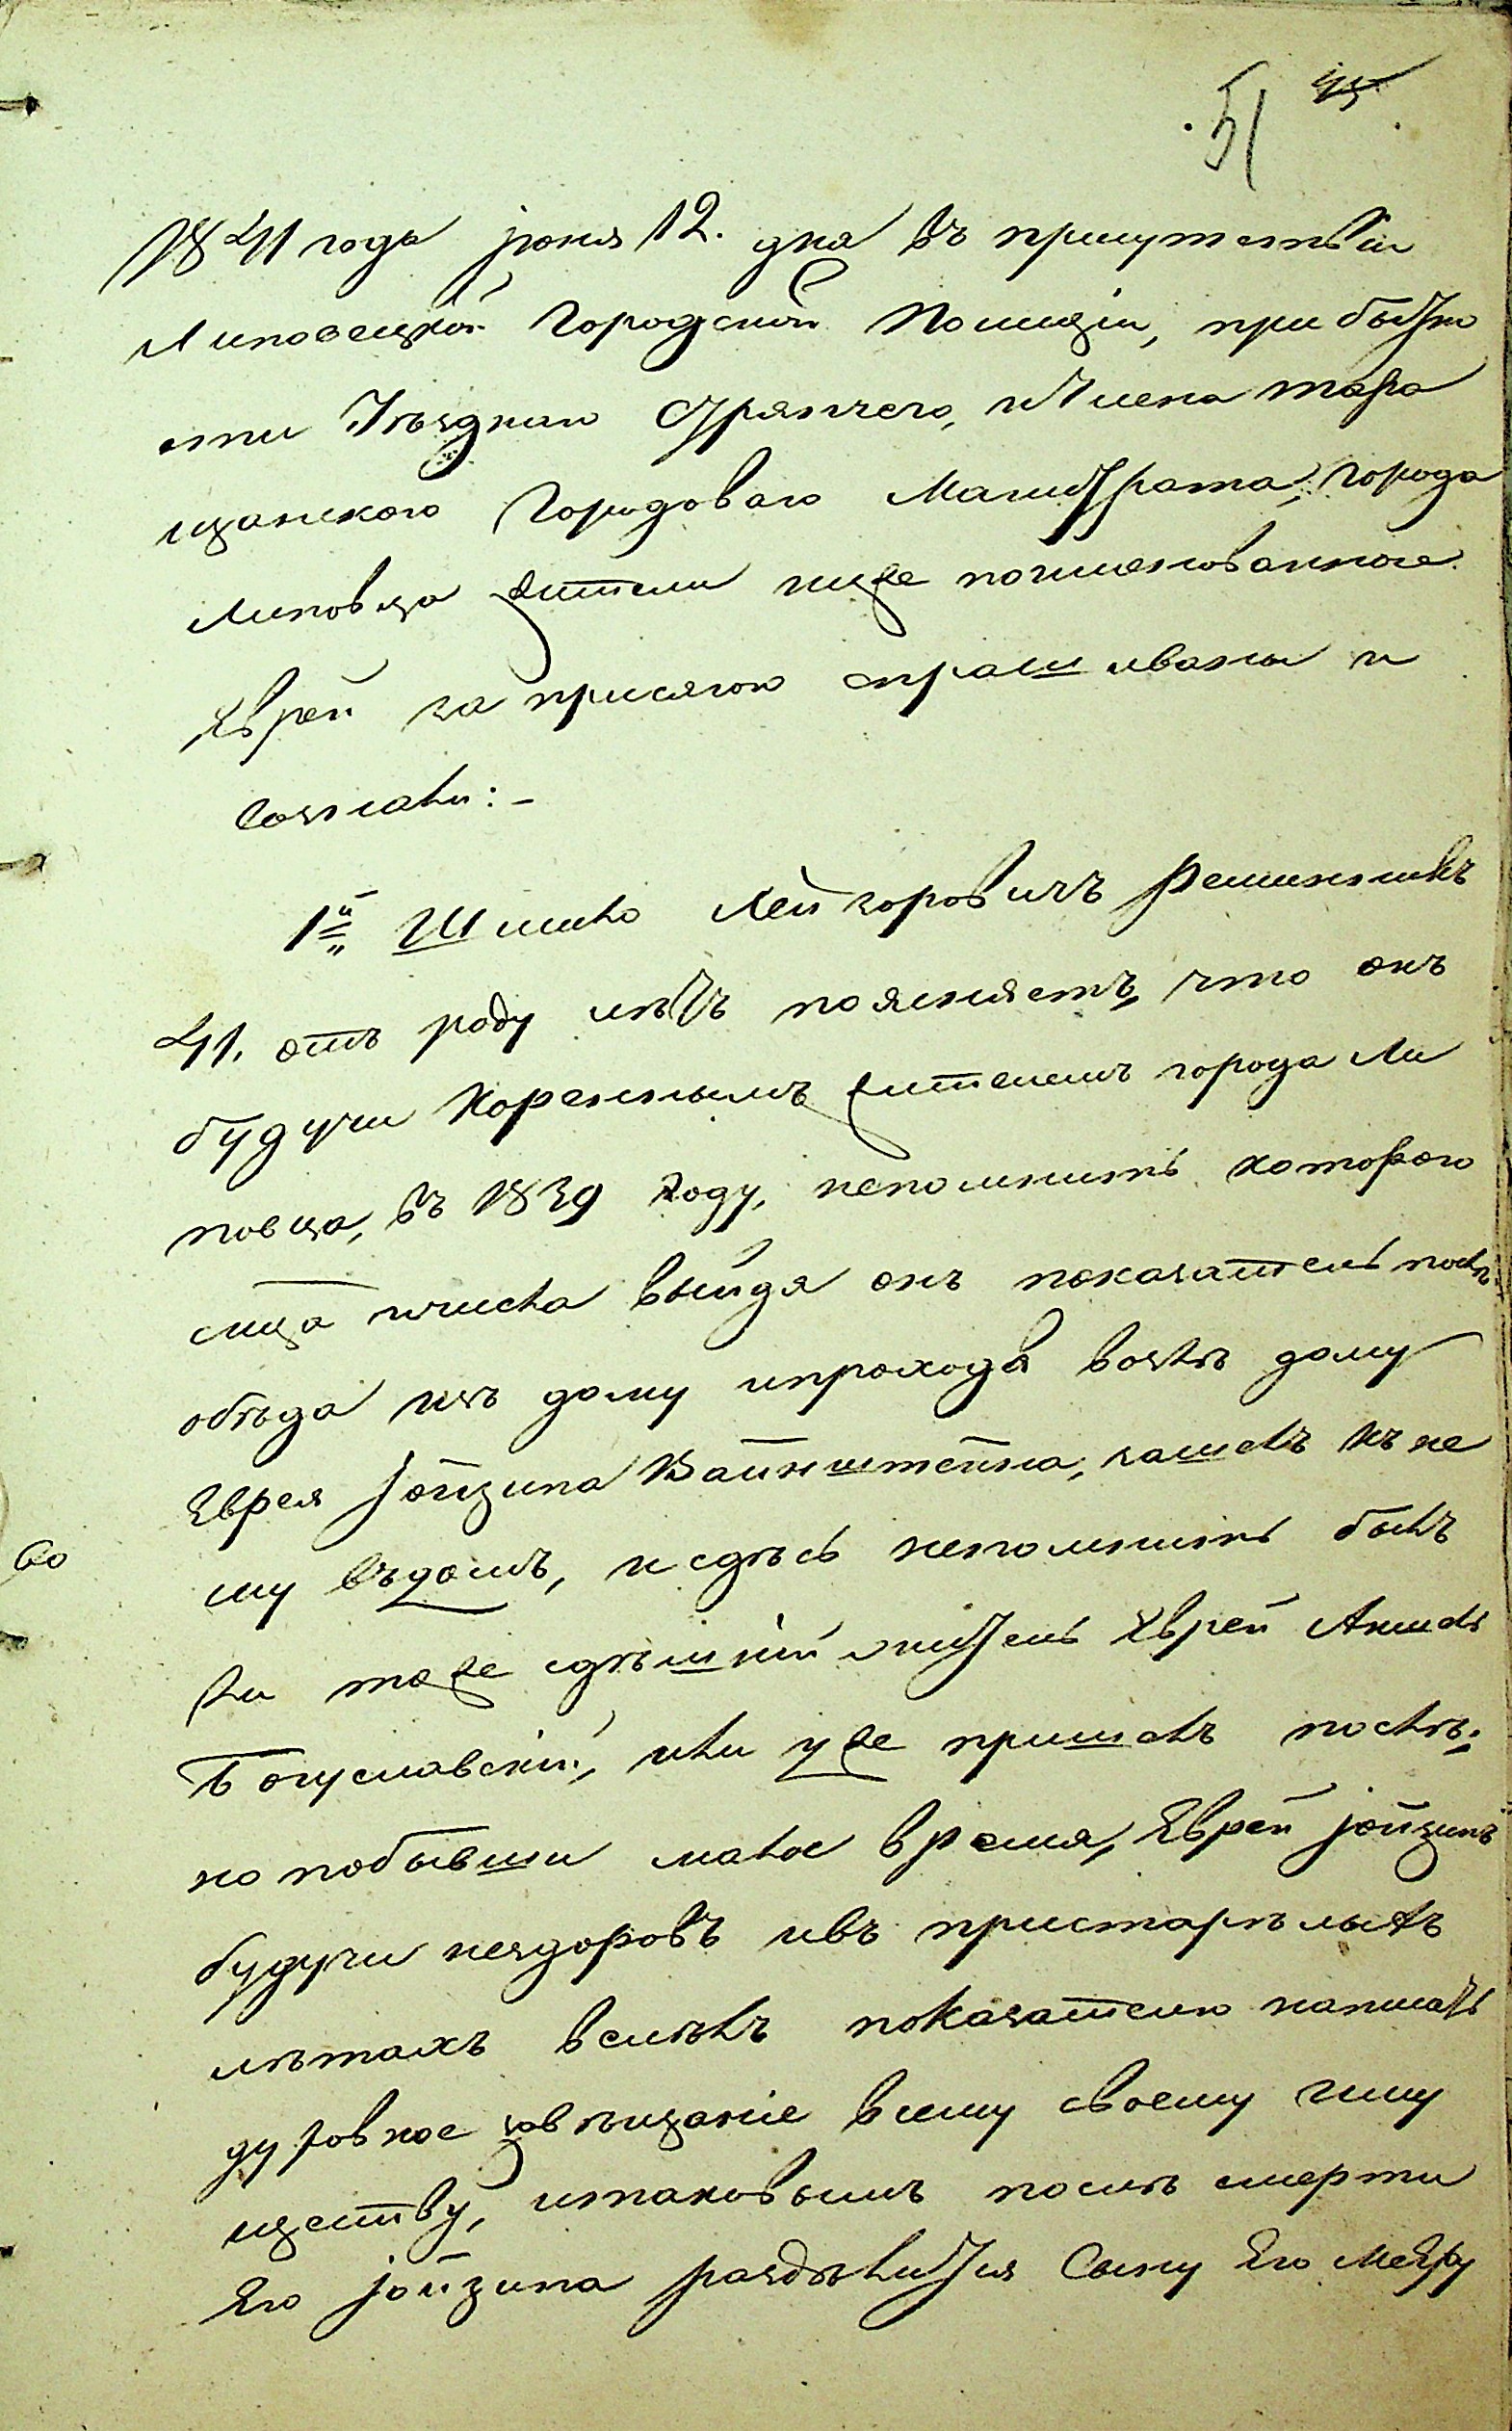 51 45
1841 года июня 12. дня въ присутствіи
Липовецкой Городской Полиціи, при бытно
сти Уѣзднаго Стряпчего, и Члена тара
щанского Городоваго Магистрата, города
Липовца жители ниже поименованные
Евреи за присягою спрашиваны и
сознали:-
1й Шмилько Лейзоровичъ
41. отъ роду лѣтъ поясняетъ, что онъ
будучи Кореннымъ жителемъ города Ли
повца, въ 1839 году, непомнитъ которого
мца и числа выйдя онъ показатель послѣ
обѣда изъ дому и проходя возлѣ дому
Еврея Іойзипа Вайнштейна, зашелъ къ не
му въ домъ, и сдѣсь непомнитъ былъ
60
ли тоже сдѣшній житель Еврей Аншель
Богуславскій, или уже пришелъ послѣ,
но побывши малое время, Еврей Іойзипъ
будучи нездоровъ и въ пристарѣлыхъ
лѣтахъ велѣлъ показателю написать
духовное завѣщаніе всему своему иму
ществу, и таковымъ послѣ смерти
Его Іойзипа раздѣлится Сыну Его